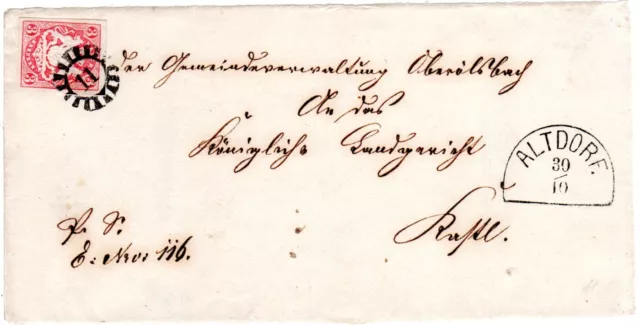 11
der Gemeindeverwaltung Oberölsbach
An das
Königliche Landgericht
Kastl.
ALTDORF.
30
10
P. S.
E: Nro: 116.